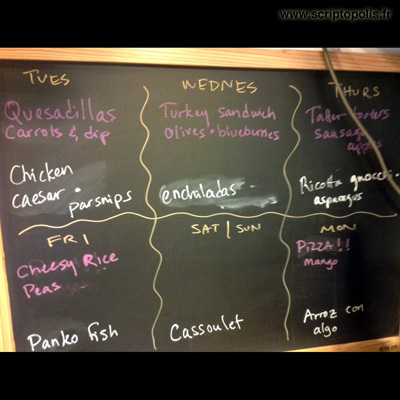 www.scriptopolis.fr
TUES
Quesadillas
Carrots & dip
Chicken
caesar •
parsnips
WEDNES
Turkey sandwich
Olives • blueberries
enchiladas
THURS
Tater
sausage
apples
Ricotta gnocchi
asparagus
FRI
Cheesy Rice
Peas
Panko Fish
SAT | SUN
Cassoulet
MON
PIZZA!!
mango
Arroz con
algo